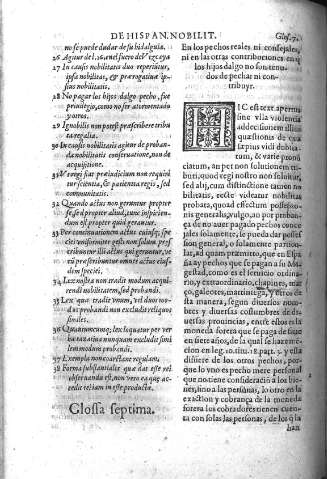 DE HISPAN. NOBILIT. Glos. 7.
no se puede dudar de su hidalguia.
26 Agitur del. 26. en el fuero de Vizcaya
27 In causis nobilitatis duo repertitur,
ipsa nobilitas, & prærogatiuæ ip-
sius nobilitatis.
28 No pagar los hijos dalgo pecho, fue
priuilegio, como no ser atormentado
y otros.
29 Ignobilis non potest præscribere tribu
ta regalia.
30 In causis nobilitatis agitur de proban-
da nobilitatis conseruatione, non de
acquisitione.
33 Vt regi fiat præiudicium non requiri
tur scientia, & patientia regis, sed
communitatis.
32 Quando actus non geruntur propter
se, sed propter aliud, tunc inspicien-
dum est propter quid gerantur.
33 Per continuationem actus cuiusq; spe
ciei uniformiter gestis non solum præ
scribuntur illi actus qui geruntur, ve
rum præscribuntur omnes actus eius-
dem speciei.
34 Lex nostra non tradit modum acqui-
rendi nobilitatem, sed probandi.
35 Lex quæ tradit vnum, vel duos mo-
dus probandi non excludit reliquos
similes.
36 Quantuncunq; lex loquatur per ver
ba taxatiua nunquam excludit simi
lem modum probandi.
37 Exempla non coarctant regulam.
38 Forma substantialis quæ dat esse rei
obseruanda est, non vero ea quæ ac-
cedit rei iam in esse productæ.
Glossa septima.
En los pechos reales ni consejales,
ni en las otras contribuciones en q̃
los hijos dalgo no son tenu-
dos de pechar ni con-
tribuyr.
HIC est text. apertus
sine vlla violencia
ad decisionem illius
quæstionis de qua
sæpius vidi dubita-
tum, & varie pronũ
ciatum, an per non solutionem tri-
buti, quod regi nostro non soluitur,
sed alij, cum distinctione tamen no
bilitatis, recte videatur nobilitas
probata, quoad effectum possessio-
nis generalis, vulgo, an por proban-
ça de no auer pagado pechos conce
jales solamente, se pueda dar posses
sion general, o solamente particu-
lar, ad quam præmitto, que en Espa
ña ay pechos que se pagan a su Ma-
gestad, como es el seruicio ordina-
rio, y extraordinario, chapines, mar
ço, galeotes, martiniega, y otros de
sta manera, segun diuersos nom-
bres y diuersas costumbres de di-
uersas prouincias, entre estos es la
moneda forera que se paga de siete
en siete años, de la qual se haze men
cion en leg. no. tit. 18. part. 3. y esta
difiere de los otros pechos, por-
que lo vno es pecho mere personal
que no tiene consideracion a los bie-
nes, sino a las personas, lo otro en la
exaction y cobrança de la moneda
forera los cobradores tienen cuen-
ta con solas las personas, de los q̃ la
han